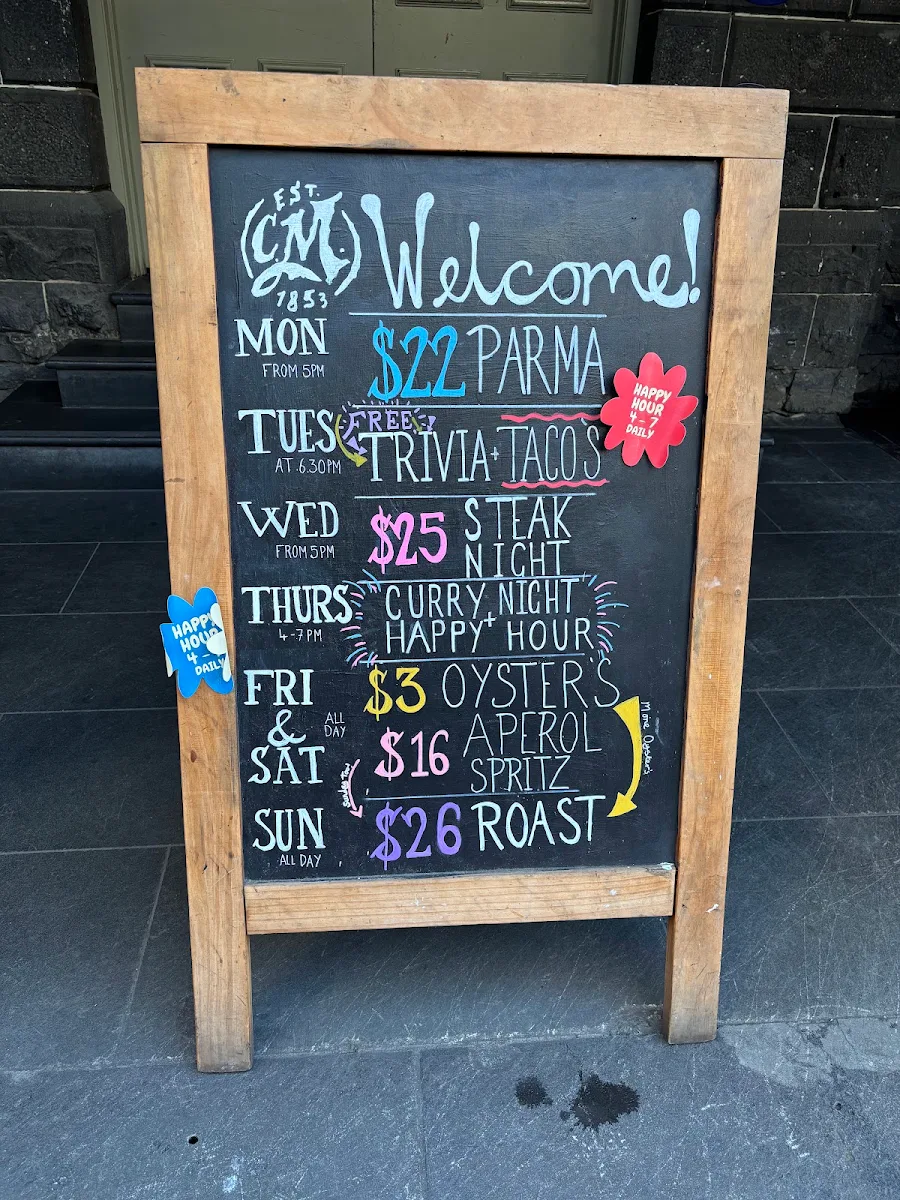 EST.
CM
1853
Welcome!
MON
FROM 5PM
$22 PARMA
HAPPY
HOUR
4 - 7
DAILY
TUES
AT 6.30PM
FREE
TRIVIA + TACO'S
WED
FROM 5PM
$25 STEAK
NIGHT
THURS
4-7PM
CURRY NIGHT
+
HAPPY HOUR
HAPPY
HOUR
4 -
DAILY
FRI
&
SAT
ALL
DAY
$3 OYSTER'S
$16 APEROL
SPRITZ
More Oyster's
SUN
ALL DAY
$26 ROAST